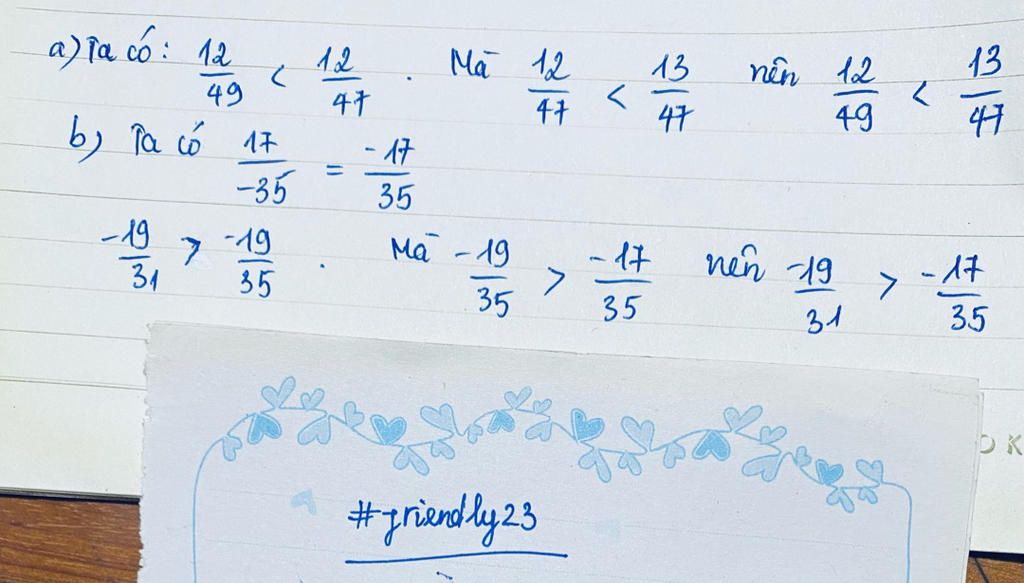 a) Ta có: 12/49 < 12/47 . Mà 12/47 < 13/47 nên 12/49 < 13/47
b) Ta có 17/-35 = -17/35
-19/31 > -19/35 . Mà -19/35 > -17/35 nên -19/31 > -17/35
#friendly23